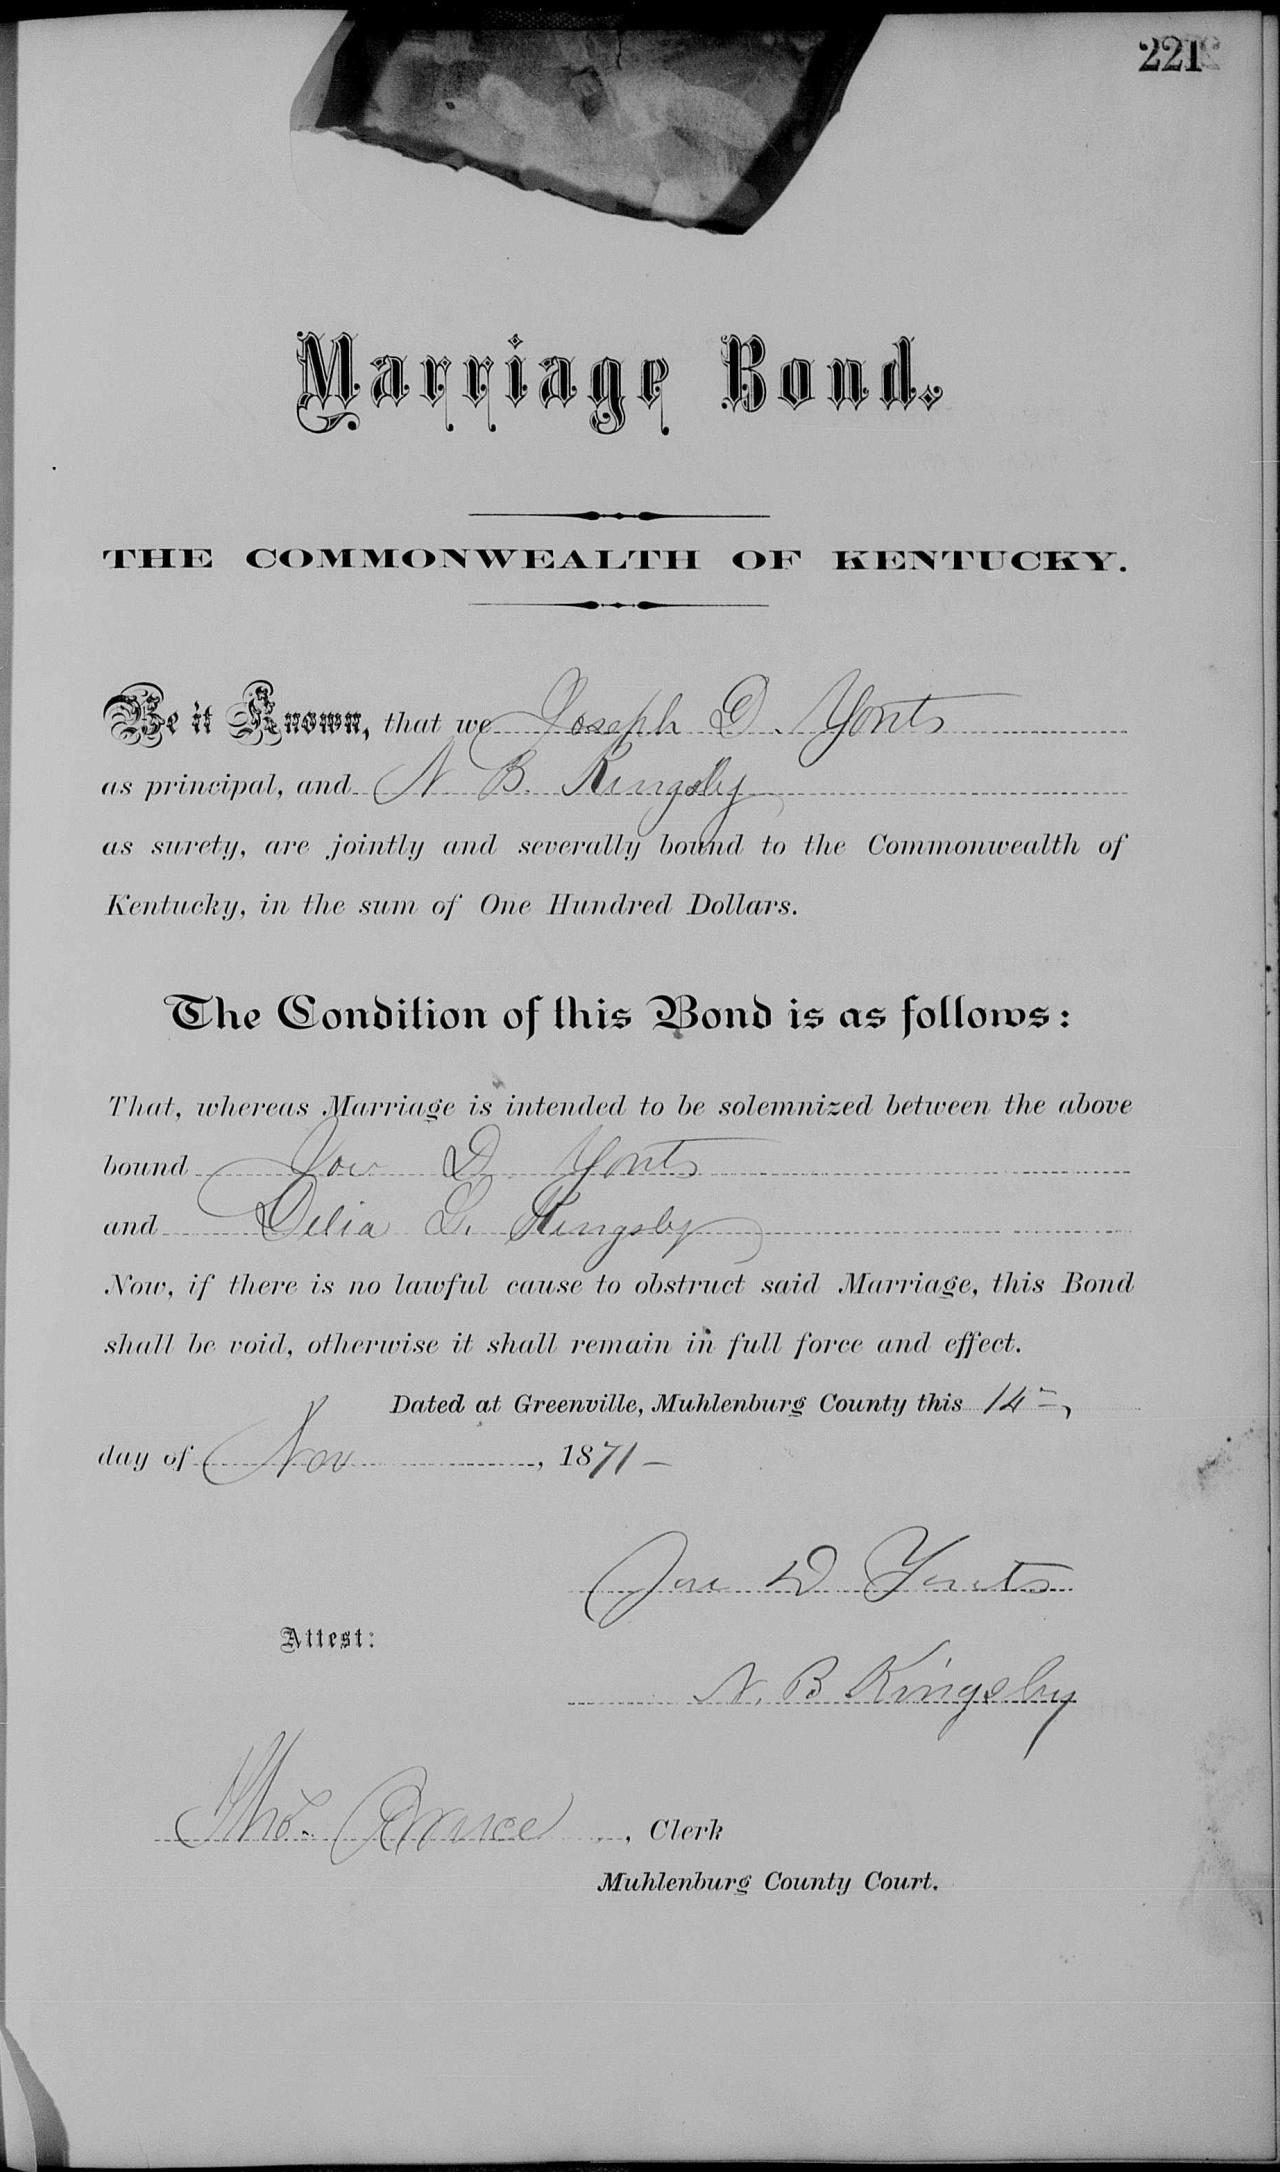 221
Marriage Bond.
THE COMMONWEALTH OF KENTUCKY.
Be it Known, that we Joseph D. Yonts
as principal, and N B. Kingsby
as surety, are jointly and severally bound to the Commonwealth of
Kentucky, in the sum of One Hundred Dollars.
The Condition of this Bond is as follows:
That, whereas Marriage is intended to be solemnized between the above
bound Joe D. Yonts
and Delia G. Kingsby
Now, if there is no lawful cause to obstruct said Marriage, this Bond
shall be void, otherwise it shall remain in full force and effect.
Dated at Greenville, Muhlenburg County this 14
day of Nov , 1871
Joe D Yonts
Attest:
N. B Kingsby
Tho. , Clerk
Muhlenburg County Court.